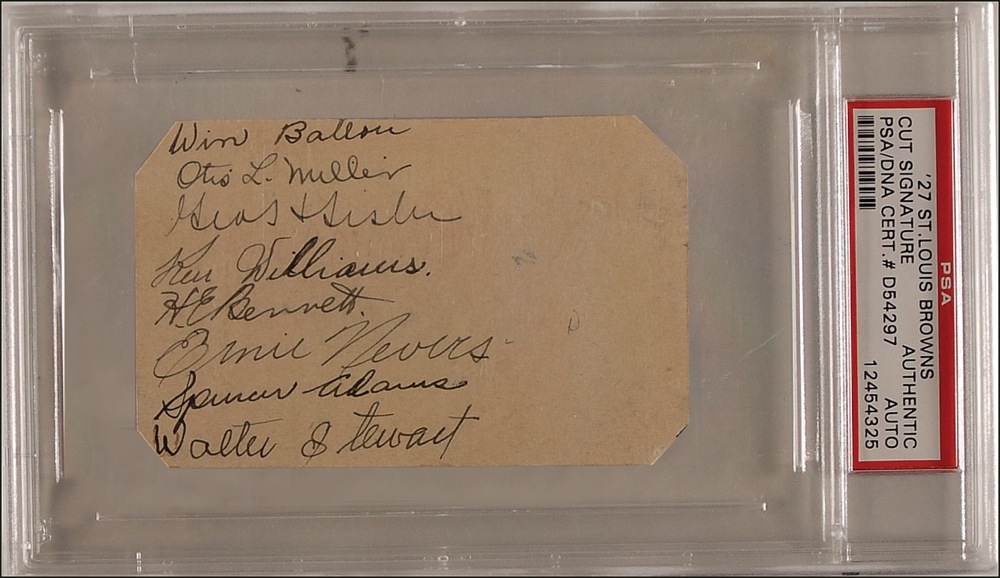 Win Ballou
Otis L. Miller
Geo H Sisler
Ken Williams.
H.E. Bennett.
Ernie Nevers
Spencer Adams
Walter Stewart
PSA
'27 ST. LOUIS BROWNS
CUT SIGNATURE AUTHENTIC
PSA/DNA CERT.# D54297 AUTO
12454325